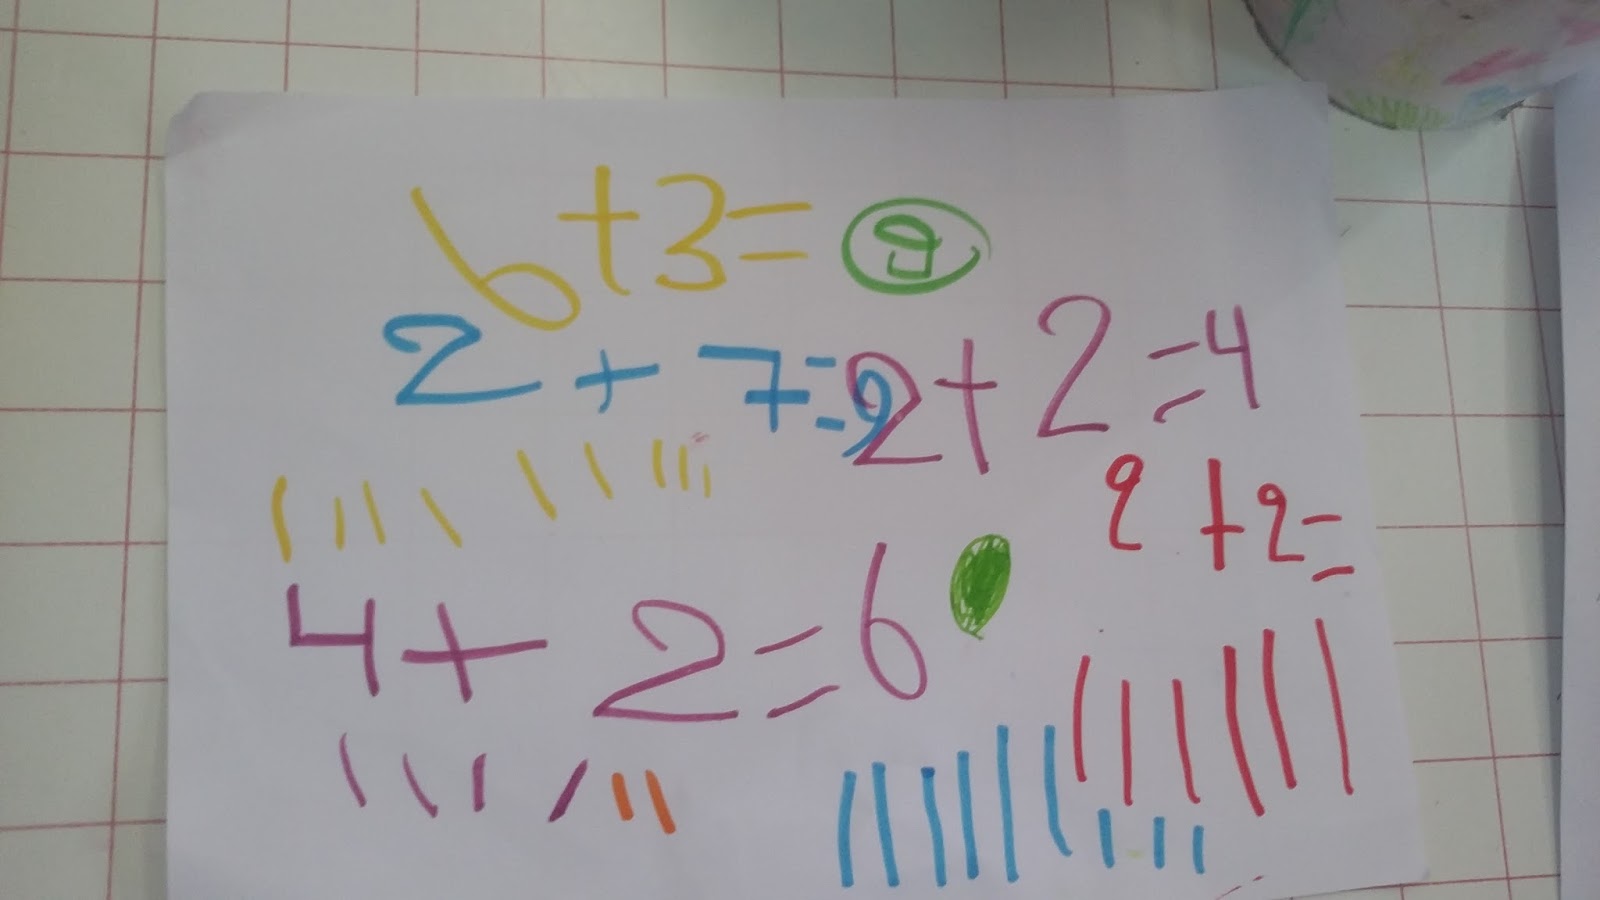 6+3=9
2+7=9
2+2=4
2+2=
4+2=6